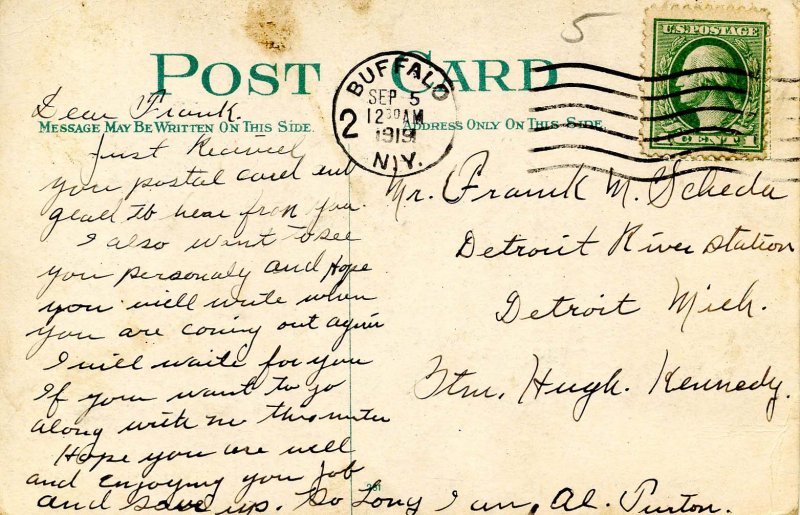 5
POST CARD
BUFFALO
SEP 5
12 30 AM
1919
N.Y.
2
U.S. POSTAGE
1
MESSAGE MAY BE WRITTEN ON THIS SIDE.
ADDRESS ONLY ON THIS SIDE.
Dear Frank.
Just Received
you postal card and
glad to hear from you.
I also want to see
you personaly and Hope
you will write when
you are coming out again
I will waite for you
If your want to go
along with me this winter
Hope you are well
and enjoying you job
and save up. So Long I am, Al.
Mr. Frank M. Scheda
Detroit River Station
Detroit Mich.
Stm. Hugh. Kennedy.
261